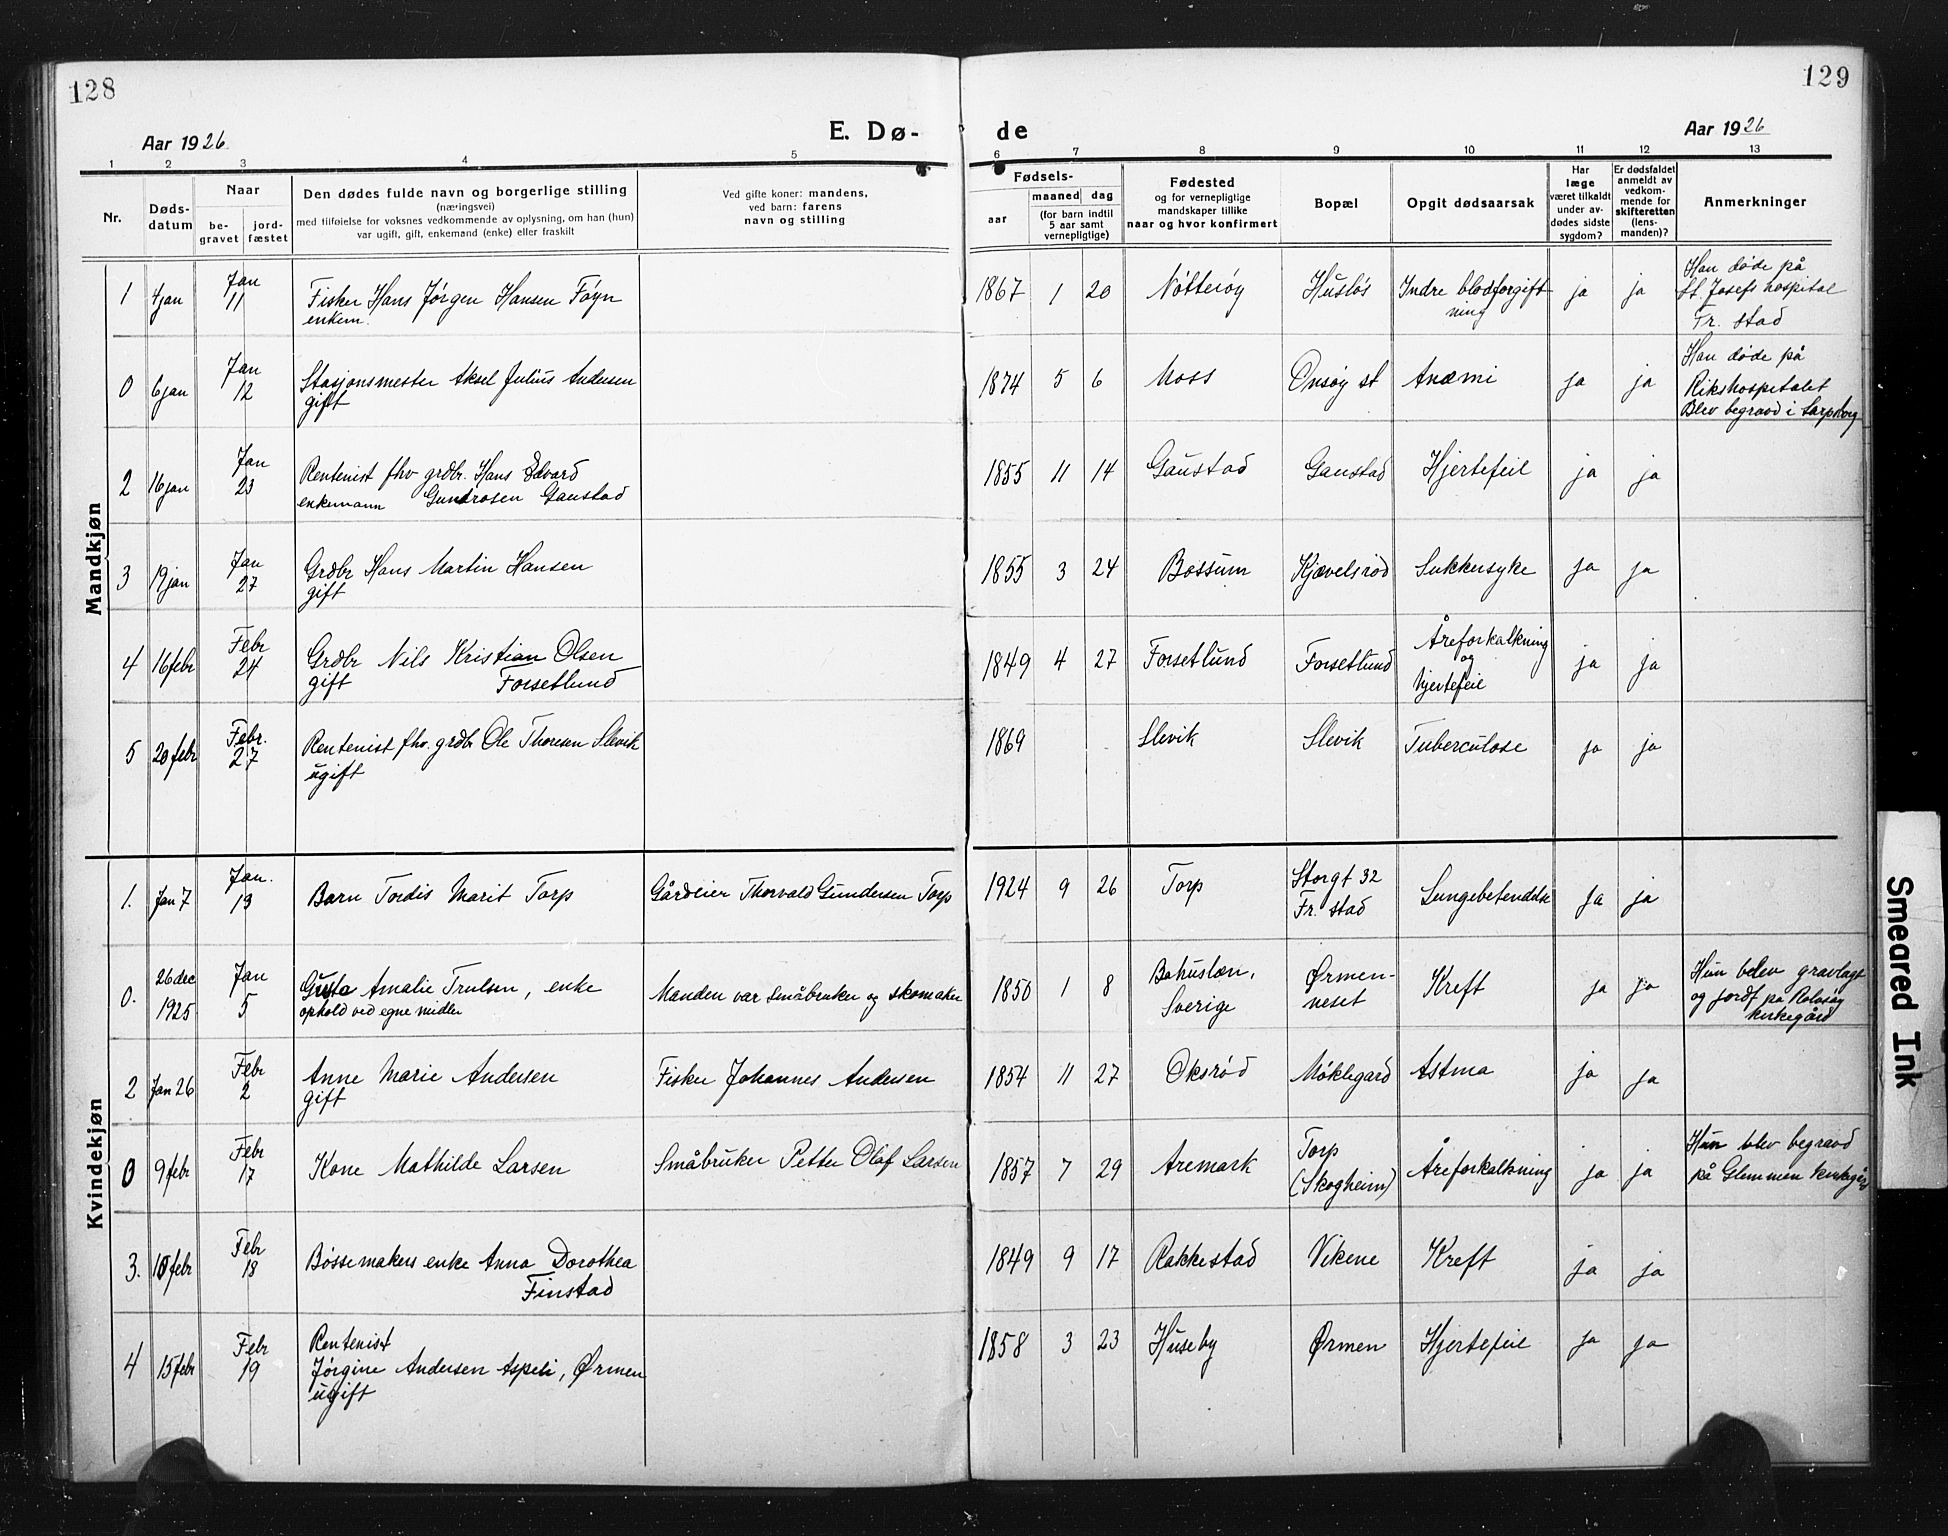 128
129
Aar 1926
E. Dø-
de
Aar 1926
1 2 3 4 5 6 7 8 9 10 11 12 13
Nr.
Døds-
datum
Naar
be-
gravet
jord-
fæstet
Den dødes fulde navn og borgerlige stilling
(næringsvei)
med tilføielse for voksnes vedkommende av oplysning, om han (hun)
var ugift, gift, enkemand (enke) eller fraskilt
Ved gifte koner: mandens,
ved barn: farens
navn og stilling
Fødsels-
aar
maaned dag
(for barn indtil
5 aar samt
vernepligtige)
Fødested
og for vernepligtige
mandskaper tillike
naar og hvor konfirmert
Bopæl
Opgit dødsaarsak
Har
læge
været tilkaldt
under av-
dødes sidste
sygdom?
Er dødsfaldet
anmeldt av
vedkom-
mende for
skifteretten
(lens-
manden)?
Anmerkninger
Mandkjøn
1 4 jan Jan
11
Fisker Hans Jørgen Hansen Føyn
enkem.
1867 1 20 Nøtterøy Husløs Indre blodforgift-
ning
ja ja
Han døde på
St. Josefs hospital
Fr. stad
0 6 jan Jan
12
Stasjonsmester Aksel Julius Andersen
gift
1874 5 6 Moss Onsøy st Anæmi ja ja
Han døde på
Rikshospitalet
Blev begravd i Sarpsborg
2 16 jan Jan
23
Rentenist fhv grdbr. Hans Edvard
enkemann Gundrosen Gaustad
1855 11 14 Gaustad Gaustad Hjertefeil ja ja
3 19 jan Jan
27
Grdbr Hans Martin Hansen
gift
1855 3 24 Bossum Kjævelsrød Sukkersyke ja ja
4 16 febr Febr
24
Grdbr Nils Kristian Olsen
gift Forsetlund
1849 4 27 Forsetlund Forsetlund Åreforkalkning
og
hjertefeil
ja ja
5 20 febr Febr.
27
Rentenist fhv. grdbr Ole Thoresen Slevik
ugift
1869 Slevik Slevik Tuberculose ja ja
Kvindekjøn
1. Jan 7 Jan.
13
Barn Tordis Marit Torp Gårdeier Thorvald Gundersen Torp
1924 9 26 Torp Storgt 32
Fr. stad
Lungebetendelse ja ja
0. 26 dec
1925
Jan
5
Gusta Amalie Trulsen, enke
ophold ved egne midler
Manden var småbruker og skomaker
1850 1 8 Bohuslæn,
Sverige
Ørmen-
neset
Kreft ja ja
Hun belev gravlagt
og jordf på Rolvsøy
kirkegård
2 Jan 26 Febr
2
Anne Marie Andersen
gift
Fisker Johannes Andersen
1854 11 27 Oksrød Møklegard Astma ja ja
0 9 febr Febr
17
Kone Mathilde Larsen Småbruker Petter Olaf Larsen
1857 7 29 Aremark Torp
(Skogheim)
Åreforkalkning ja ja
Hun blev begravd
på Glemmen kirkegård
3. 10 febr Febr
18
Bøssemakers enke Anna Dorothea
Finstad
1849 9 17 Rakkestad Vikene Kreft ja ja
4 15 febr Febr
19
Rentenist
Jørgine Andersen Aspeli, Ørmen
ugift
1858 3 23 Huseby Ørmen Hjertefeil ja ja
Smeared Ink